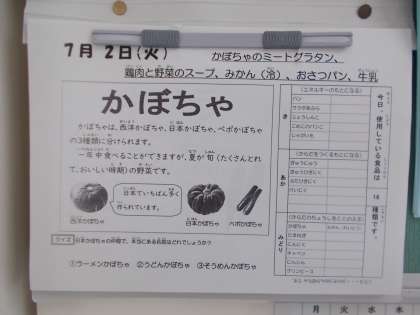 7月 2日(火)
かぼちゃのミートグラタン、
鶏肉と野菜のスープ、みかん(冷)、おさつパン、牛乳
かぼちゃ
かぼちゃは、西洋かぼちゃ、日本かぼちゃ、ペポかぼちゃ
の3種類に分けられます。
一年中食べることができますが、夏が旬(たくさんとれ
て、おいしい時期)の野菜です。
日本でいちばん多く
作られています。
西洋かぼちゃ
日本かぼちゃ
ペポかぼちゃ
クイズ 日本かぼちゃの仲間で、本当にある名前はどれでしょうか?
①ラーメンかぼちゃ ②うどんかぼちゃ ③そうめんかぼちゃ
今日、使用している食品は
16
種類です。
き
(エネルギーのもとになる)
パン
じゃがいも
あか
(からだをつくるもとになる)
ぎゅうにゅう
みどり
(からだのちょうしをととのえる)
かぼちゃ
たまねぎ
にんじん
キャベツ
にんにく
グリンピース
月 火 水 木